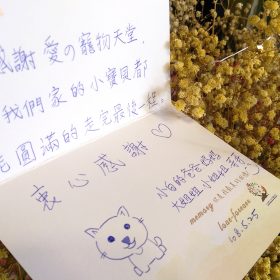 感謝 愛の寵物天堂,
我們家的小寶貝都
能圓滿的走完最後一程。
衷心感謝
小白的爸爸 媽媽
大姐姐 小姐姐
memory
love forever
108.5.25